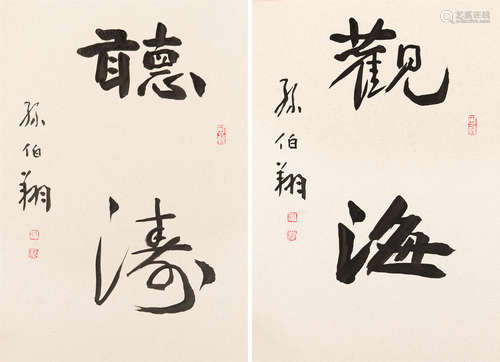 觀海
孫伯翔
聽濤
孫伯翔